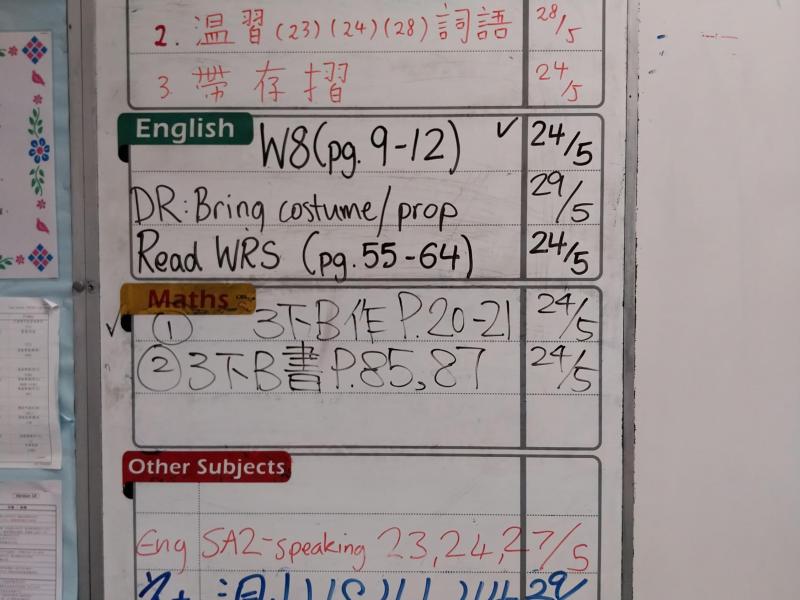 2. 温習(23)(24)(28)詞語 28/5
3. 帶存摺 24/5
English
W8(pg. 9-12) ✓ 24/5
DR: Bring costume/prop 29/5
Read WRS (pg. 55-64) 24/5
Maths
✓ ① 3下B作 P.20-21 24/5
② 3下B書 P.85,87 24/5
Other Subjects
Eng SA2-speaking 23,24,27/5